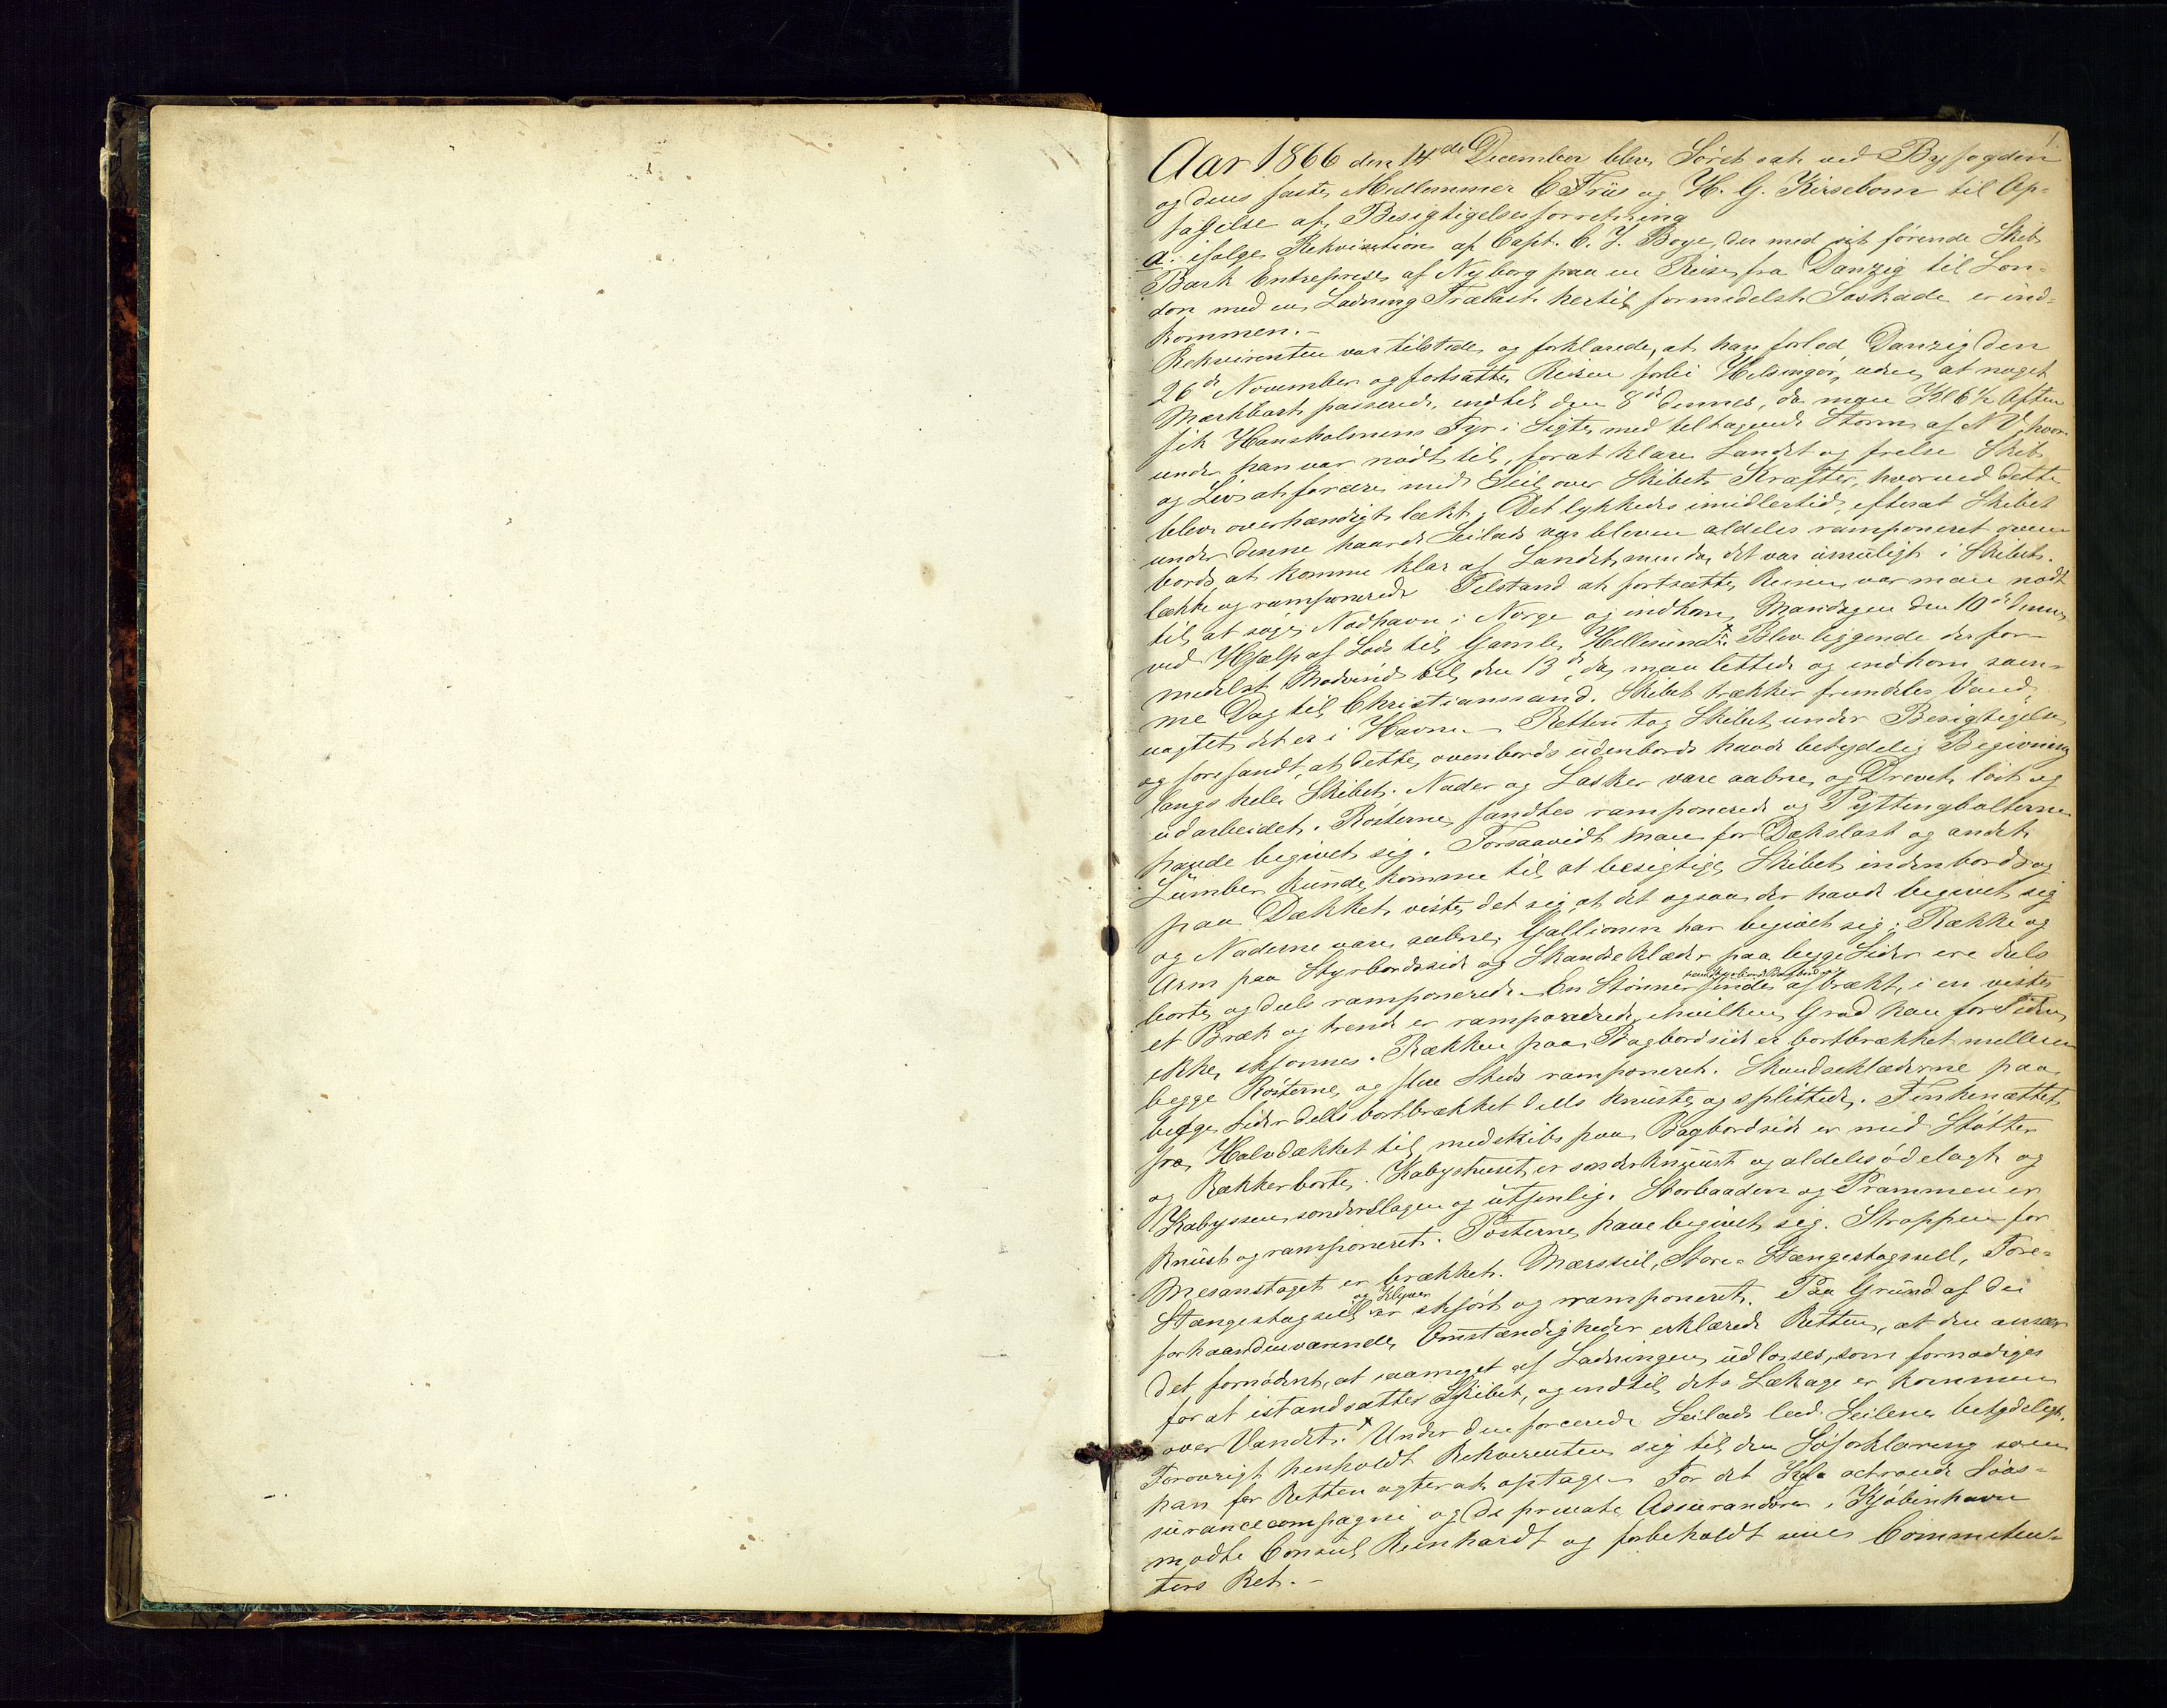 1
Aar 1866 den 14de December blev Søret sat ved Byfogden
og dens faste Medlemmer C Friis og H. G. Kirsebom til Op-
tagelse af Besigtigelsesforretning
a. ifølge Rekvisition af Capt. C. J. Boye, der med sit førende Skib
Bark Entreprise af Nyborg paa en Reise fra Danzig til Lon-
don med en Ladning Trælast hertil formedelst Søskade er ind-
kommen.-
Rekvirenten var tilstede og forklarede, at han forlod Danzig den
26de November og fortsatte Reisen forbi Helsingør, uden at noget
Mærkbart passerede, indtil den 8de dennes, da man Kl 6½ Aften
fik Hansholmens Fyr i Sigte med tiltagende Storm af NV, hvor-
under han var nødt til, for at klare Landet og frelse Skib
og Liv at forcere med Seil over Skibets Kræfter, hvorved dette
blev overhændigt lækt. Det lykkedes imidlertid, efterat Skibet
under denne haarde Seilads var bleven aldeles ramponeret oven-
bords at komme klar af Landet, men da det var umuligt i Skibets
lække og ramponerede Tilstand at fortsætte Reisen, var man nødt
til at søge Nødhavn i Norge og indkom Mandagen den 10de dennes
ved Hjælp af Lods til Gamle Hellesund. Blev liggende der for-
medelst Modvind til den 13de, da man lettede og indkom sam-
me Dag til Christianssand. Skibet trækker fremdeles Vand,
uagtet det er i Havn. - Retten tog Skibet under Besigtigelse
og forefandt, at dette ovenbords udenbords havde betydelig Begivning
langs hele Skibet. Nader og Lasker vare aabne og Drevet løst og
udarbeidet. Røsterne fandtes ramponerede og Pyttingboltene
havde begivet sig. Forsaavidt man for Dækslast og andet
Lumber kunde komme til at besigtige Skibet indenbords og
paa Dækket, viste det sig, at det ogsaa der havde begivet sig
og Naderne vare aabne, Gallionen har begivet sig. Række og
Arm paa Styrbordsside og Skandseklæder paa begge Sider ere dels
borte og dels ramponerede. En Støtter findes afbrækt, i en
et Bræk og er ramponerede, i hvilken Grad kan for Tiden
ikke skjønnes. Rækken paa Bagbordside er bortbrækket mellem
begge Røsterne, og flere Steds ramponeret. Skandseklæderne paa
begge Sider dels bortbrækket dels knuste og splittede. Finkenættet
fra Halvdækket til midskibs paa Bagbordside er med Støtter
og Rækker borte. Kabyshuset er sønderknust og aldeles ødelagt og
Kabyssen sønderslagen og utjenlig. Storbaaden og Prammen er
knust og ramponeret. Røsterne have begivet sig. Stroppen for
Mesanstaget er brækket. Mærsseil, Store-Stængestagseil, Fore-
Stængestagseil og Klyver er skjørt og ramponeret. Paa Grund af de
forhaandenværende Omstændigheder erklærede Retten, at den anser
det fornødent, at saameget af Ladningen udlosses, som fornødiges
for at istandsætte Skibet, og indtil dets Lækage er kommen
over Vandet. x Under den forcerede Seilads led Seilene betydeligt.
Forøvrigt henholdt Rekvirenten sig til den Søforklaring som
han for Retten agter at optage. - For det Kgl. octroyede Søas-
surancecompagni og de private Assurandører i Kjøbenhavn
mødte Consul Reinhardt og forbeholdt sine Committen-
ters Ret.-